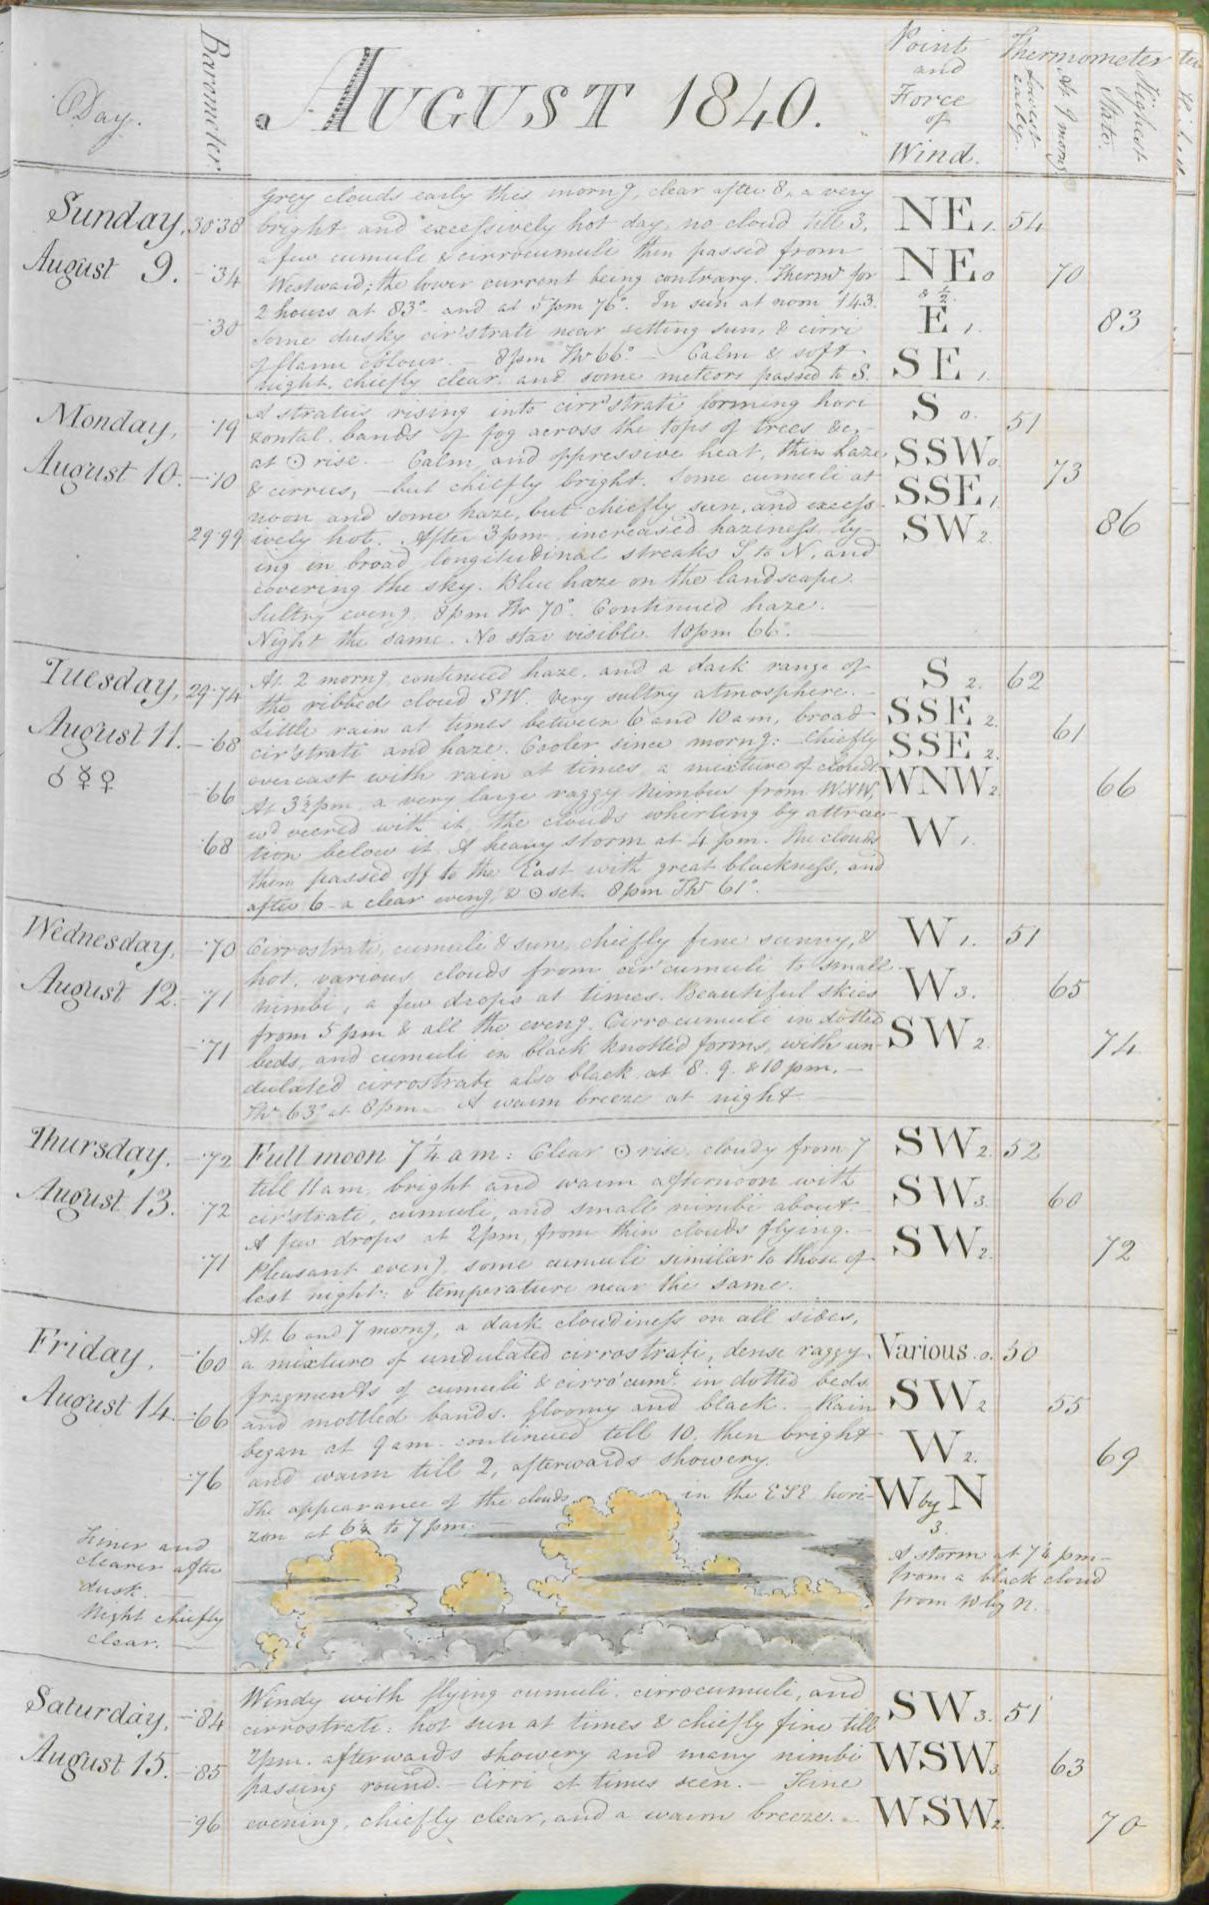 Day.
Barometer
AUGUST 1840.
Point
and
Force
of
Wind.
Thermometer
Lowest
early.
At 9 morng
Highest
State.
Sunday,
August 9.
30·38
—·34
—·30
Grey clouds early this morng, clear after 8, a very
bright and excessively hot day, no cloud till 3,
a few cumuli & cirrocumuli then passed from
Westward; the lower current being contrary. Thermr for
2 hours at 83° and at 5pm 76°. In sun at noon 143.
Some dusky cir'strati near setting sun, & cirri
of flame colour. — 8pm Thr 66°. — Calm & soft
night, chiefly clear, and some meteors passed to S.
NE 1.
NE 0
& ½.
E 1.
SE 1.
54
70
83
Monday,
August 10.
·19
—·10
29·99
A stratus rising into cirr'strati forming hori
zontal bands of fog across the tops of trees &c,
at ☉ rise. — Calm and oppressive heat, thin haze
& cirrus, — but chiefly bright. Some cumuli at
noon and some haze, but chiefly sun, and excess-
ively hot. After 3pm increased haziness ly-
ing in broad longitudinal streaks S to N, and
covering the sky. Blue haze on the landscape.
Sultry eveng. 8pm Thr 70°. Continued haze.
Night the same. No star visible. 10pm 66°.
S 0.
SSW 0
SSE 1
SW 2.
51
73
86
Tuesday,
August 11.
♂ ☿ ♀
29·74
—·68
·66
·68
At 2 morng continued haze, and a dark range of
the ribbed cloud SW. Very sultry atmosphere.
Little rain at times between 6 and 10 am, broad
cir'strati and haze. Cooler since morng: — Chiefly
overcast with rain at times, a mixture of clouds.
At 3½pm, a very large raggy nimbus from WNW,
wd veered with it, the clouds whirling by attrac-
tion below it. A heavy storm at 4 pm. The clouds
then passed off to the East with great blackness, and
after 6 - a clear eveng, & ☉ set. 8pm Thr 61°.
S 2.
SSE 2.
SSE 2
WNW 2.
W 1.
62
61
66
Wednesday,
August 12.
—·70
—·71
—·71
Cirrostrati, cumuli & sun, chiefly fine sunny, &
hot, various clouds from cir'cumuli to small
nimbi, a few drops at times. Beautiful skies
from 5 pm & all the eveng. Cirrocumuli in dotted
beds, and cumuli in black knotted forms, with un-
dulated cirrostrati also black at 8. 9. & 10 pm. —
Thr 63° at 8pm. A warm breeze at night.
W 1.
W 3.
SW 2.
51
65
74
Thursday.
August 13.
—·72
·72
·71
Full moon 7¼ am: Clear ☉ rise, cloudy from 7
till 11 am, bright and warm afternoon with
cir'strati, cumuli, and small nimbi about.
A few drops at 2pm, from thin clouds flying. —
Pleasant eveng, some cumuli similar to those of
last night: & temperature near the same.
SW 2.
SW 3.
SW 2.
52
60
72
Friday,
August 14.
—·60
—·66
—·76
At 6 and 7 morng, a dark cloudiness on all sides,
a mixture of undulated cirrostrati, dense raggy
fragments of cumuli & cirro'cumi in dotted beds
and mottled bands. Gloomy and black. — Rain
began at 9 am. continued till 10, then bright
and warm till 2, afterwards showery.
The appearance of the clouds in the ESE hori-
zon at 6¼ to 7 pm.
Finer and
clearer after
dusk.
Night chiefly
clear. —
Various 0.
SW 2
W 2.
W by N
3.
A storm at 7¼ pm —
from a black cloud
from W by N.
50
55
69
Saturday,
August 15.
—·84
—·85
—·96
Windy with flying cumuli, cirrocumuli, and
cirrostrati: hot sun at times & chiefly fine till
2pm. afterwards showery and many nimbi
passing round. — Cirri at times seen. — Fine
evening, chiefly clear, and a warm breeze. —
SW 3.
WSW 3
WSW 2.
51
63
70